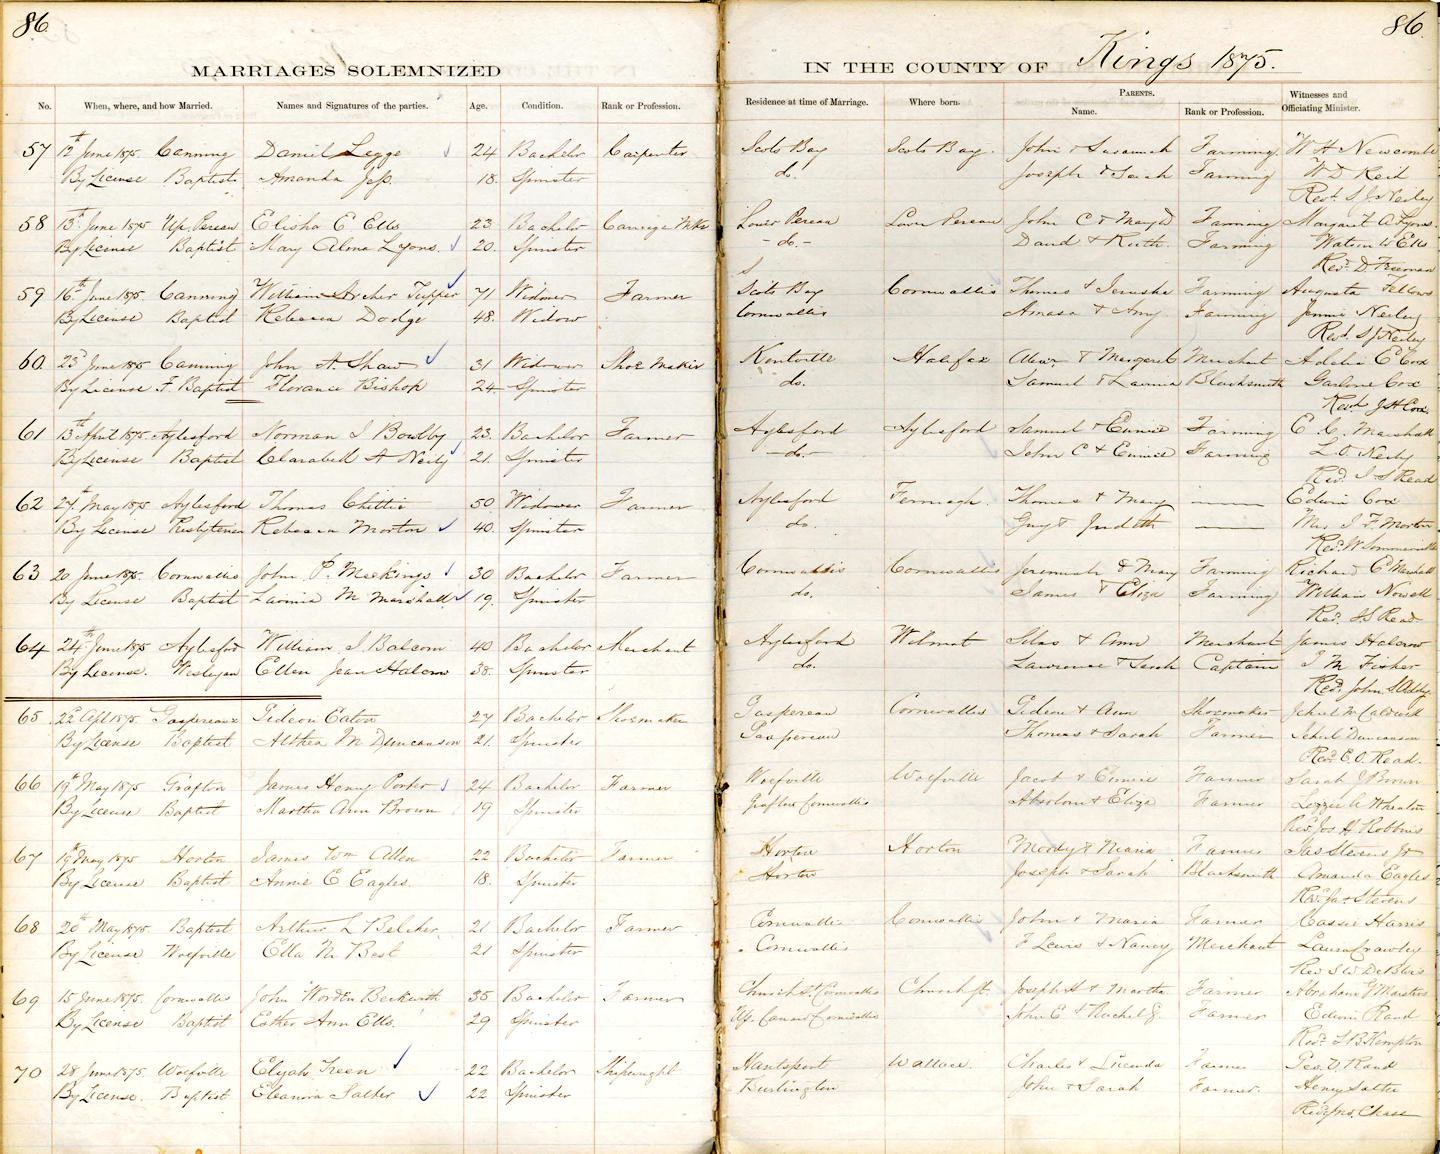 86
MARRIAGES SOLEMNIZED
No. When, where, and how Married. Names and Signatures of the parties. Age. Condition. Rank or Profession.
57 12th June 1875 Canning Daniel Legge 24 Bachelor Carpenter
By License Baptist Amanda Jess 18. Spinster
58 13th June 1875 Up. Pereau Elisha E Ells 23 Bachelor Carriage Mkr
By License Baptist Mary Alma Lyons 20. Spinster
59 16th June 1875 Canning William Archer Tupper 71 Widower Farmer
By License Baptist Rebecca Dodge 48. Widow
60 23d June 1875 Canning John A. Shaw 31 Widower Shoe Maker
By License F. Baptist Florance Bishop 24 Spinster
61 13th April 1875 Aylesford Norman I Bowlby 23. Bachelor Farmer
By License Baptist Clarabell A Neily 21. Spinster
62 27th May 1875 Aylesford Thomas Chittic 50. Widower Farmer
By License Presbyterian Rebecca Morton 40. Spinster
63 20 June 1875 Cornwallis John P. Meekings 30 Bachelor Farmer
By License Baptist Lavinia M Marshall 19. Spinster
64 24th June 1875 Aylesford William I Balcom 40 Bachelor Merchant
By License. Wesleyan Ellen Jean Halcrow 38. Spinster
65 22d Apl 1875. Gaspereaux Gideon Eaton 27 Bachelor Shoemaker
By License Baptist Althea M Duncanson 21. Spinster
66 19th May 1875 Grafton James Henry Porter 24 Bachelor Farmer
By License Baptist Martha Ann Brown 19 Spinster
67 19th May 1875 Horton James Wm Allen 22 Bachelor Farmer
By License Baptist Annie E Eagles 18. Spinster
68 20th May 1875 Baptist Arthur L Belcher 21 Bachelor Farmer
By License Wolfville Ella M Best 21 Spinster
69 15 June 1875. Cornwallis John Worden Beckwith 35 Bachelor Farmer
By License Baptist Esther Ann Ells. 29 Spinster
70 28 June 1875. Wolfville Elijah Treen 22 Bachelor Shipwright
By License. Baptist Eleanora Salter 22 Spinster
86
IN THE COUNTY OF Kings 1875.
Residence at time of Marriage. Where born. PARENTS. Name. Rank or Profession. Witnesses and Officiating Minister.
Scots Bay Scots Bay. John & Susannah Farming. W H Newcombe
do. Joseph & Sarah Farming W D Reid
Revd. S J Neiley
Lower Pereau Lower Pereau John C & Mary D Farming Margaret A Lyons.
- do. - David & Ruth. Farming Watson W Ells
Revd. D Freeman
Scots Bay Cornwallis Thomas & Jerusha Farming Augusta Fellows
Cornwallis Amasa & Amy Farming Jennie Neiley
Revd. S J Neiley
Kentville Halifax & Margaret Merchant Adelia E Cox
do. Samuel & Lavinia Blacksmith Cox
Revd J H Cox.
Aylesford Aylesford Samuel & Eunice Farming E. C. Marshall
- do. - John C & Eunice Farming L. O. Neily
Revd I S Read
Aylesford Fermagh. Thomas & Mary Edwin Cox
do. Guy & Judith Mrs I F. Morton
Revd. W Sommerville
Cornwallis Cornwallis Jeremiah & Mary Farming Richard E Marshall
do. James & Eliza Farming William Nowell
Revd. I S Read
Aylesford Wilmot Silas & Ann Merchant James Halcrow
do. Lawrence & Sarah Captain I M Fisher
Revd. John S Addy.
Gaspereau Cornwallis Gideon & Ann Shoemaker Jehiel W Caldwell
Gaspereau Thomas & Sarah Farmer Duncanson
Revd. E. O. Read.
Wolfville Wolfville Jacob & Eunice Farmer Sarah J Brown
Grafton Cornwallis Absolom & Eliza Farmer Lizzie A Wheaton
Revd. Jos H Robbins
Horton Horton Moody & Maria Farmer Jas Stevens Jr
Horton Joseph & Sarah Blacksmith Amanda Eagles
Revd. Jas Stevens
Cornwallis Cornwallis John & Maria Farmer Cassie Harris
Cornwallis F Lewis & Nancy Merchant Laura Crawley
Revd S W DeBlois
Church St. Cornwallis Church St. Joseph A & Martha Farmer Abraham G Masters
Up. Canard Cornwallis John E & Rachel G. Farmer Edwin Rand
Revd. S B Kempton
Hantsport Wallace Charles & Lucinda Farmer Geo. D. Rand
Burlington John & Sarah Farmer. Henry Salter
Revd Jno. Chase